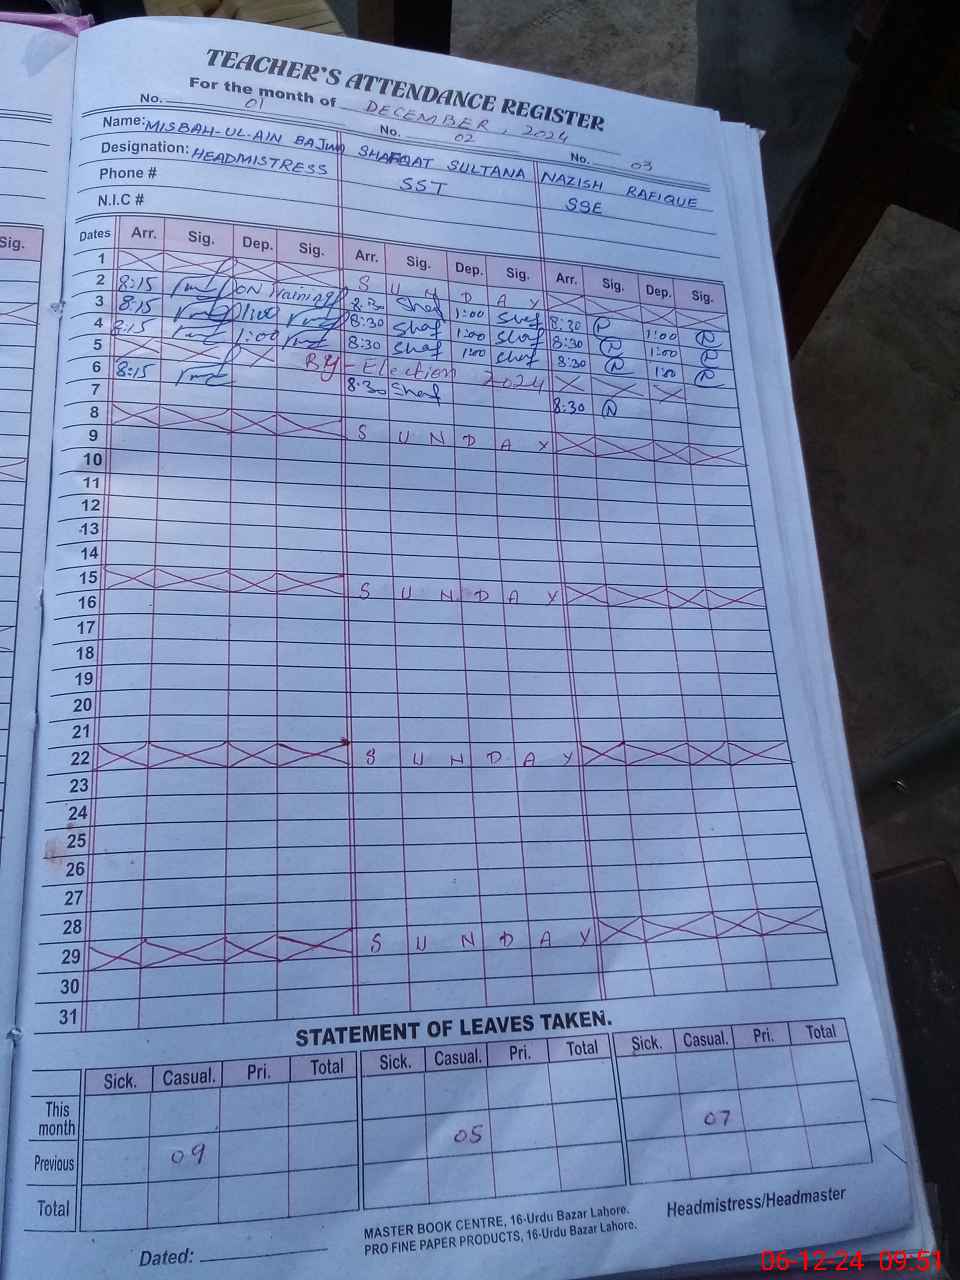 TEACHER'S ATTENDANCE REGISTER
For the month of DECEMBER, 2024
No. 01 No. 02 No. 03
Name: MISBAH-UL-AIN BAJWA SHAFQAT SULTANA NAZISH RAFIQUE
Designation: HEADMISTRESS SST SSE
Phone #
N.I.C #
Sig.
Dates Arr. Sig. Dep. Sig. Arr. Sig. Dep. Sig. Arr. Sig. Dep. Sig.
1 S U N D A Y
2 8:15 ON Training 8:30 Shaf 1:00 Shaf 8:30 1:00
3 8:15 1:00 8:30 Shaf 1:00 Shaf 8:30 1:00
4 8:15 1:00 8:30 Shaf 1:00 Shaf 8:30 1:00
5 BY-Election 2024
6 8:15 8:30 Shaf 8:30
7
8 S U N D A Y
9
10
11
12
13
14
15 S U N D A Y
16
17
18
19
20
21
22 S U N D A Y
23
24
25
26
27
28
29 S U N D A Y
30
31
STATEMENT OF LEAVES TAKEN.
Sick. Casual. Pri. Total Sick. Casual. Pri. Total Sick. Casual. Pri. Total
This month
Previous 09 05 07
Total
MASTER BOOK CENTRE, 16-Urdu Bazar Lahore.
PRO FINE PAPER PRODUCTS, 16-Urdu Bazar Lahore.
Headmistress/Headmaster
Dated:
06-12-24 09:51